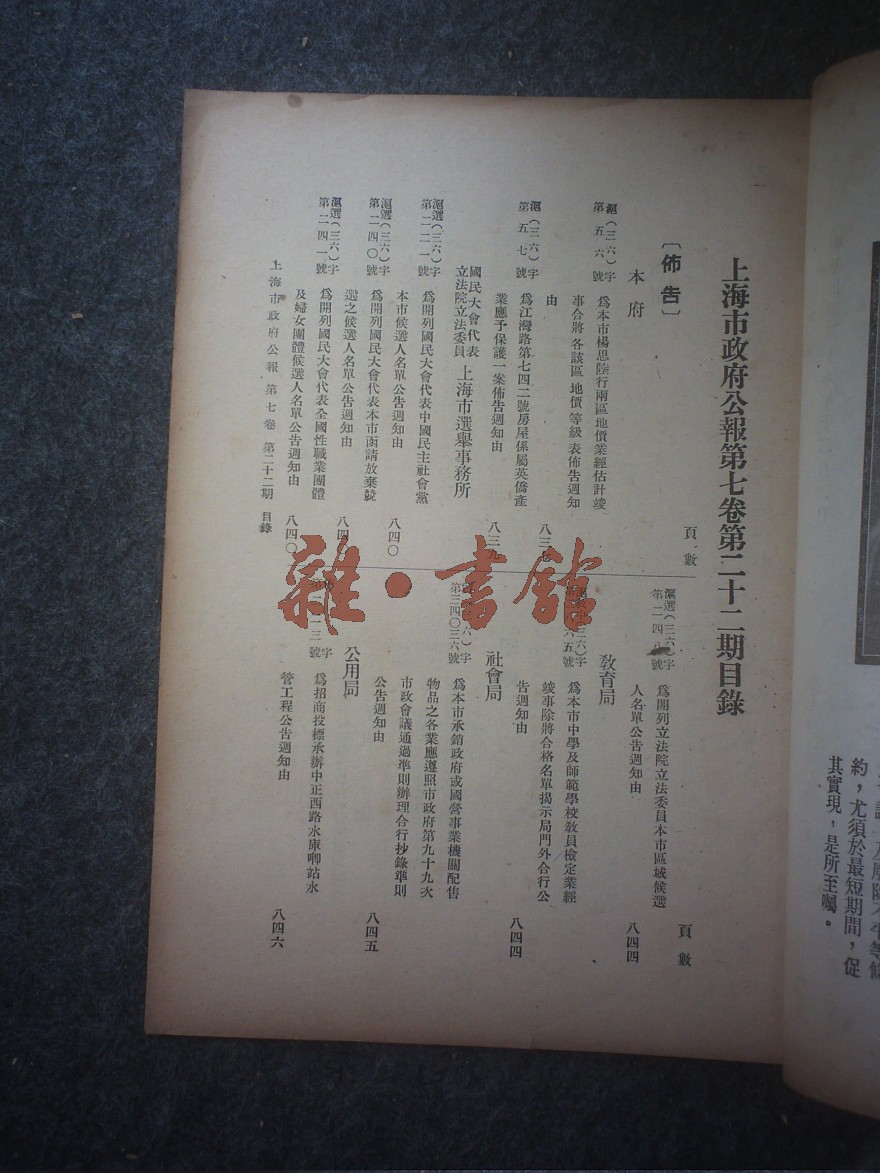 上海市政府公報第七卷第二十二期目錄
頁數
〔佈告〕
本府
滬(三六)字
第五六號
爲本市楊思陸行兩區地價業經估計竣
事合將各該區地價等級表佈告週知
由
八三
滬(三六)字
第五七號
爲江灣路第七四二號房屋係屬英僑產
業應予保護一案佈告週知由
八三九
國民大會代表
立法院立法委員
上海市選舉事務所
滬選(三六)字
第二二一號
爲開列國民大會代表中國民主社會黨
本市候選人名單公告週知由
八四〇
滬選(三六)字
第二四〇號
爲開列國民大會代表本市函請放棄競
選之候選人名單公告週知由
八四
滬選(三六)字
第二四一號
爲開列國民大會代表全國性職業團體
及婦女團體候選人名單公告週知由
八四〇
上海市政府公報 第七卷 第二十二期 目錄
頁數
滬選(三六)字
第二四 號
爲開列立法院立法委員本市區域候選
人名單公告週知由
八四四
教育局
三六)字
六五號
爲本市中學及師範學校教員檢定業經
竣事除將合格名單揭示局門外合行公
告週知由
八四四
社會局
六)字
第三四〇三六號
爲本市承銷政府或國營事業機關配售
物品之各業應遵照市政府第九十九次
市政會議通過準則辦理合行抄錄準則
公告週知由
八四五
公用局
字
二三號
爲招商投標承辦中正西路水庫唧站水
管工程公告週知由
八四六
雜·書館
約，尤須於最短期間，促
其實現，是所至囑。